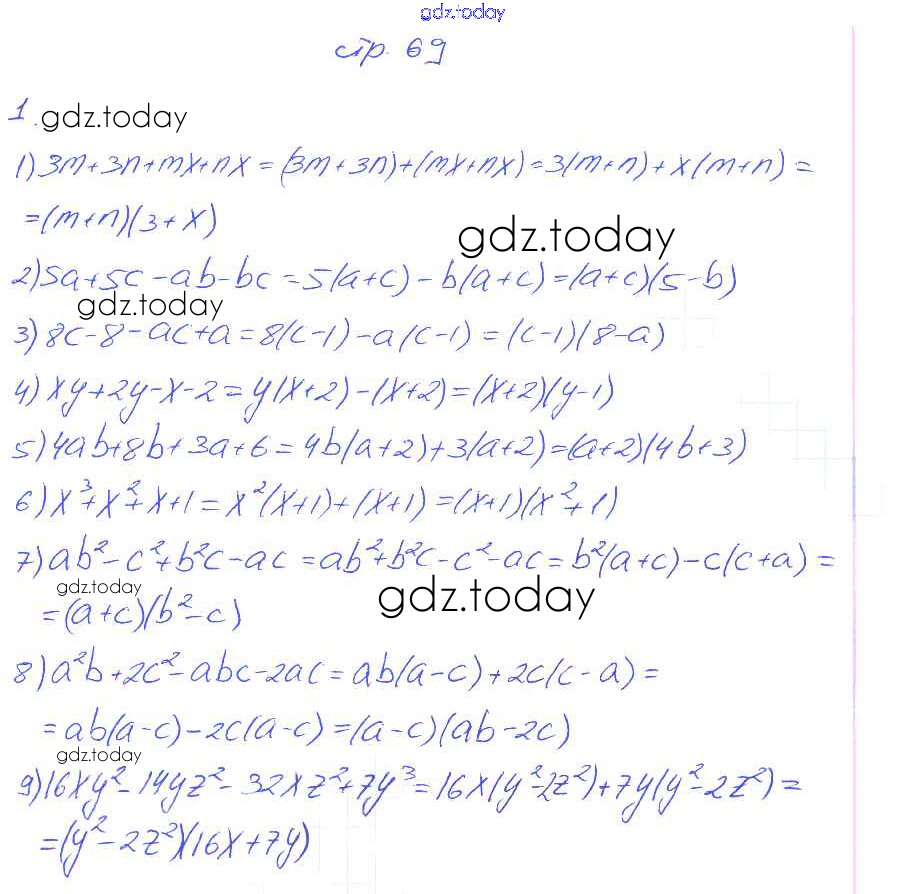 gdz.today
стр. 69
1. gdz.today
1) 3m+3n+mx+nx = (3m+3n)+(mx+nx) = 3(m+n)+x(m+n) =
=(m+n)(3+x)
gdz.today
2) 5a+5c-ab-bc = 5(a+c)-b(a+c)=(a+c)(5-b)
gdz.today
3) 8c-8-ac+a = 8(c-1)-a(c-1) = (c-1)(8-a)
4) xy+2y-x-2 = y(x+2)-(x+2)=(x+2)(y-1)
5) 4ab+8b+3a+6 = 4b(a+2)+3(a+2)=(a+2)(4b+3)
6) x³+x²+x+1 = x²(x+1)+(x+1)=(x+1)(x²+1)
7) ab²-c²+b²c-ac = ab²+b²c-c²-ac = b²(a+c)-c(c+a) =
gdz.today
=(a+c)(b²-c)
gdz.today
8) a²b+2c²-abc-2ac = ab(a-c)+2c(c-a) =
= ab(a-c)-2c(a-c) = (a-c)(ab-2c)
gdz.today
9) 16xy²-14yz²-32xz²+7y³ = 16x(y²-2z²)+7y(y²-2z²) =
=(y²-2z²)(16x+7y)